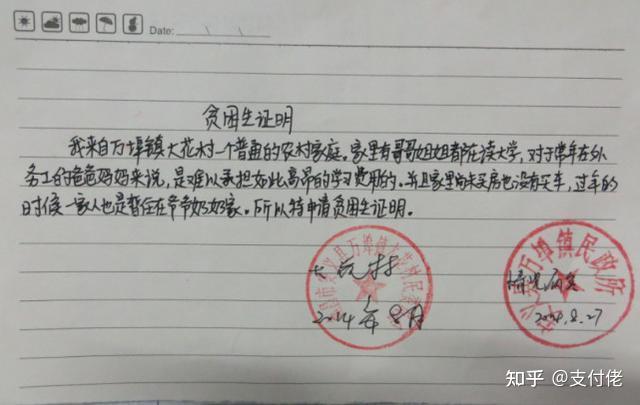 Date:
贫困生证明
我来自万埠镇大花村一个普通的农村家庭。家里有哥哥姐姐都在读大学,对于常年在外
务工的爸爸妈妈来说,是难以承担如此高昂的学习费用的。并且家里尚未买房也没有买车,过年的
时候一家人也是暂住在爷爷奶奶家。所以特申请贫困生证明。
安义县万埠镇民政府
情况属实
2014年8月
2014.8.27
知乎 @支付佬